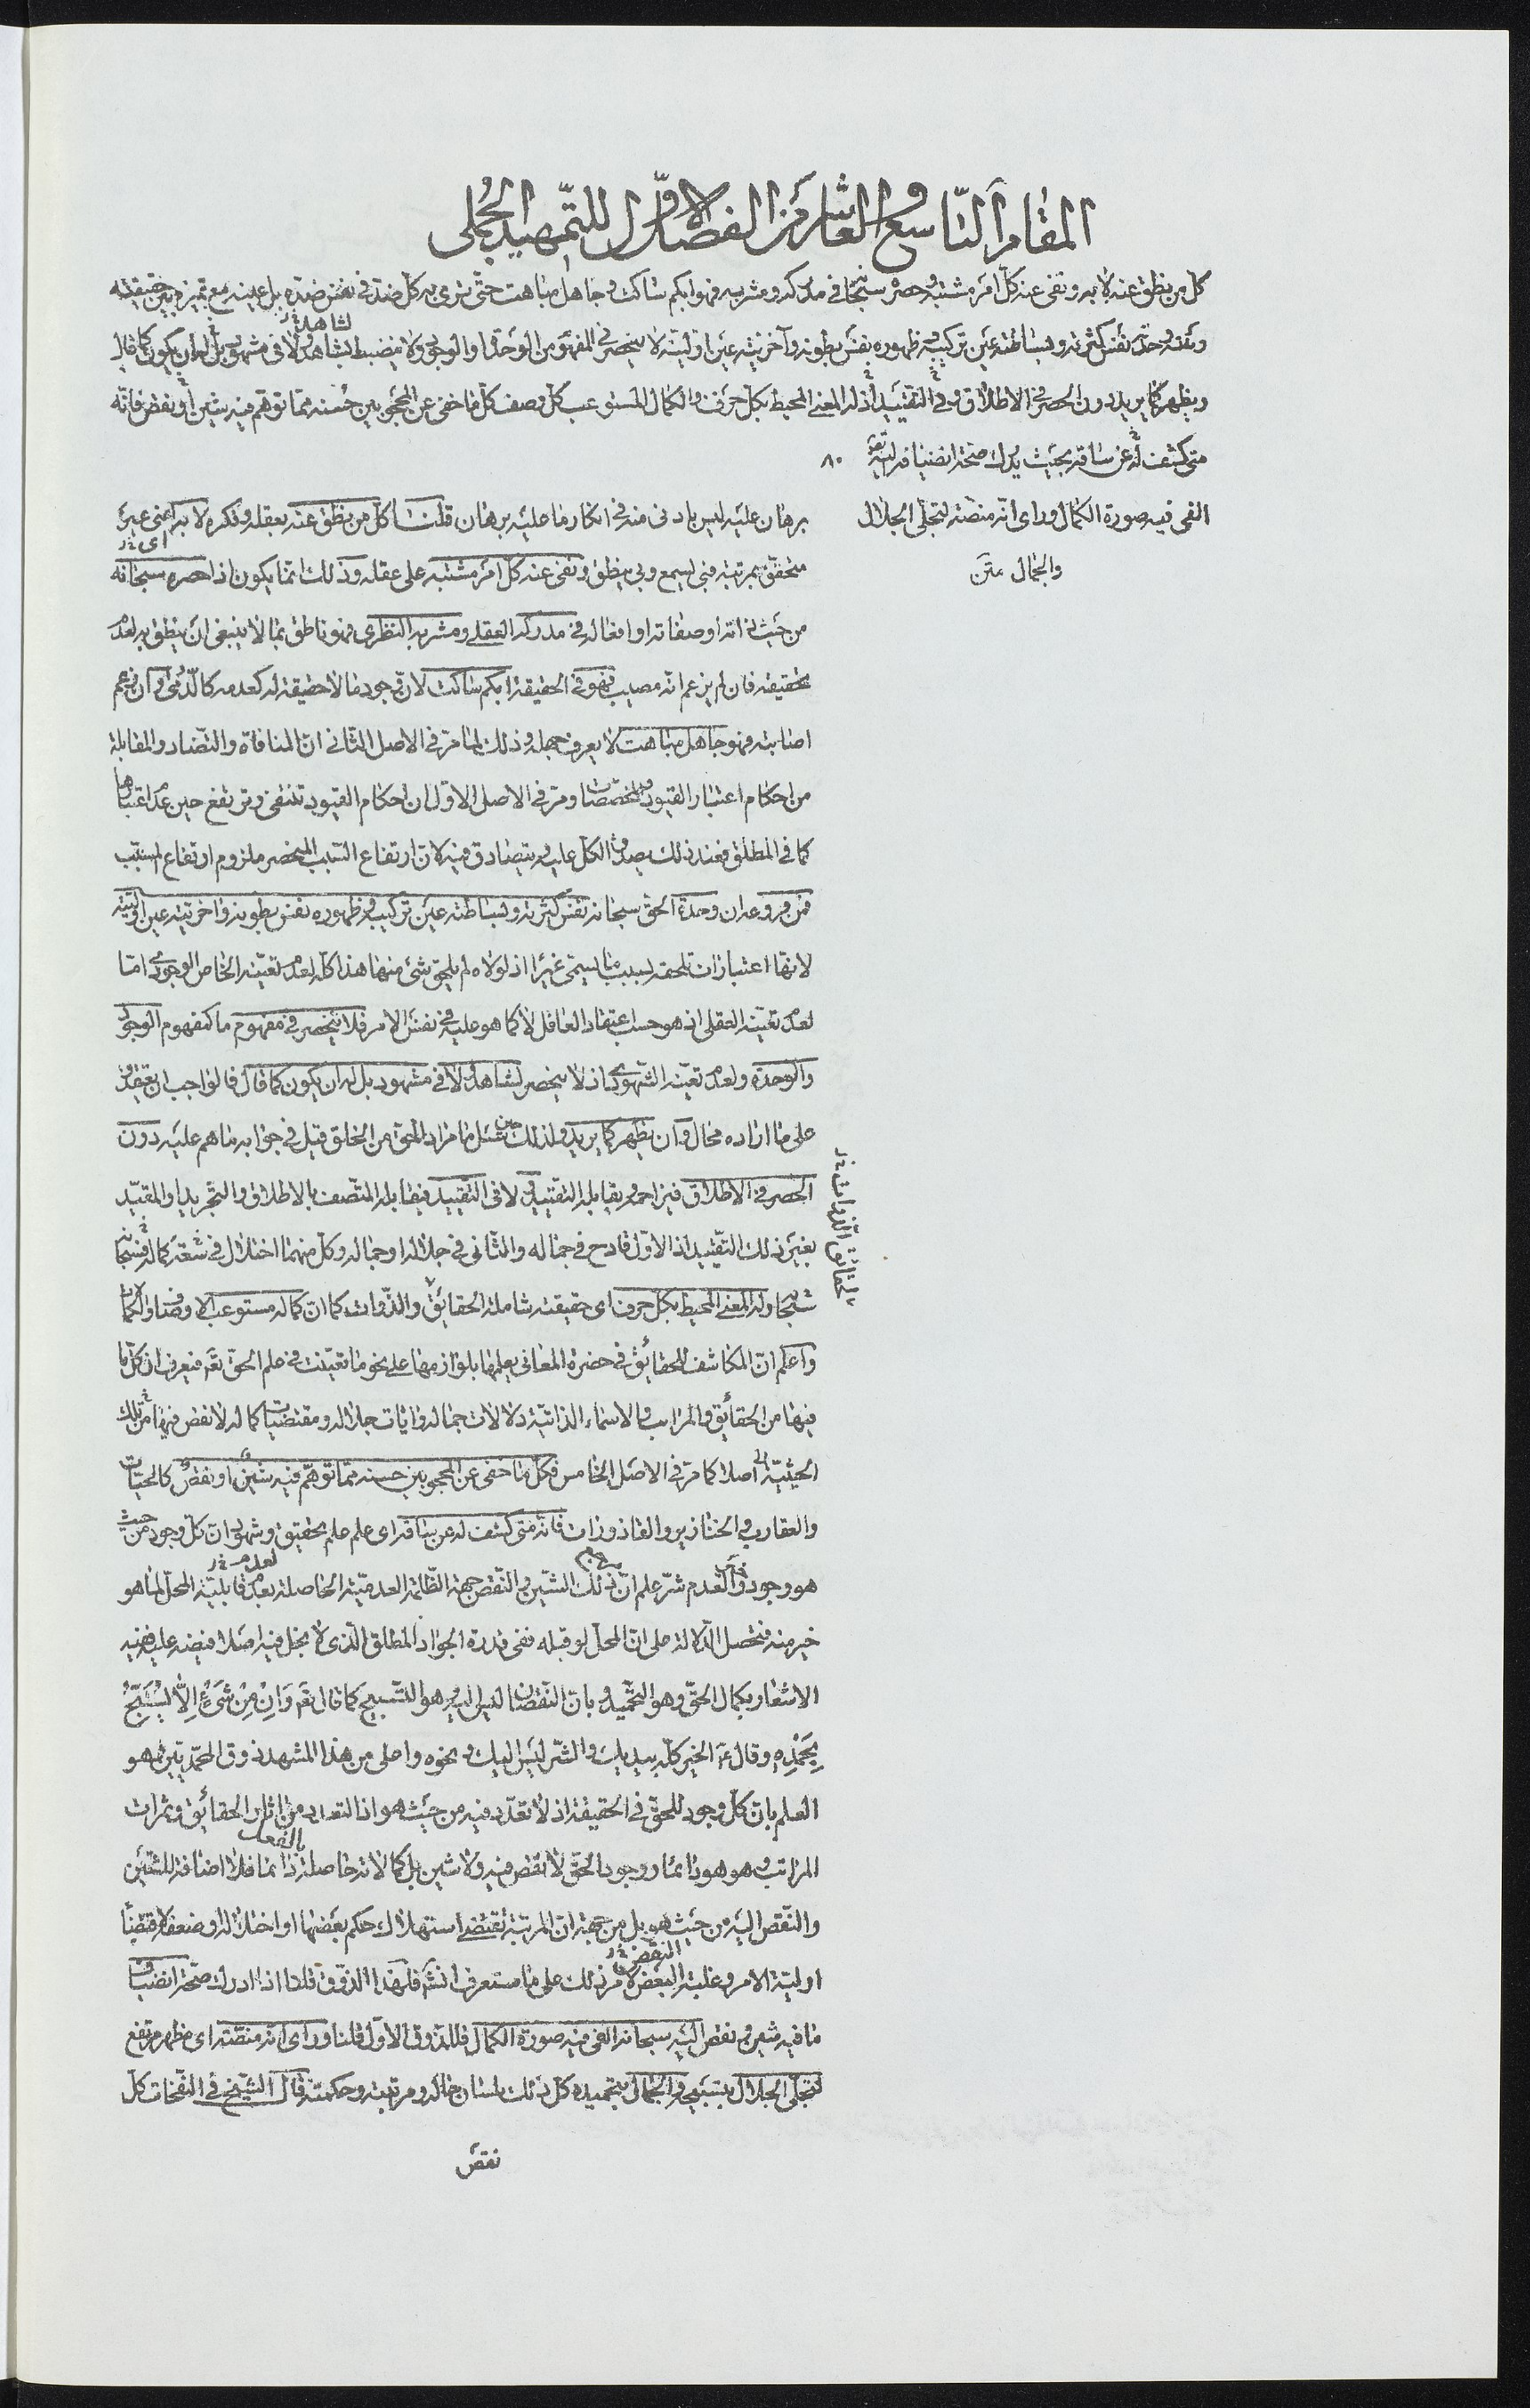 المقام التاسع والعاشر من الفصل الاول للتمهيد الجملي
كل من نطق عنه لا به ونفى عنه كل امر مشتبه وحصره سبحانه في مدركه ومشربه فهو ابكم ساكت وجاهل مباهت حتى يرى به كل ضد في نفس ضده بل عينه مع تميزه بين حقيقته
وبقية وحدته نفس كثرته وبساطته عين تركيبه وظهوره نفس بطونه وآخريته عين اوليته لا ينحصر في المفهوم من الوحدة او الوجود ولا ينضبط لشاهد ولا في مشهود بل له ان يكون كما قال
ويظهر كما يريد دون الحصر في الاطلاق وفي التقييد له المعنى المحيط بكل حرف والكمال المستوعب كل وصف كل ما خفي عن المحجوبين حسنه مما توهم فيه شين او نقص فانه
متى كشف له عن ساقه بحيث يدرك صحة انضيافه اليه ٨٠
الفى فيه صورة الكمال وراى انه منصة لتجلي الجلال
والجمال متن
برهان عليه ليس بادنى منه في انكار ما عليه برهان قلنا كل من نطق عنه بعقله وفكره لا به اعني غير
متحقق بمرتبة فبي يسمع وبي ينطق ونفى عنه كل امر مشتبه على عقله وذلك انما يكون اذا حصره سبحانه
من حيث ذاته او صفاته او افعاله في مدركه العقلي ومشربه النظري فهو ناطق بما لا ينبغي ان ينطق به لعدم
تحقيقه فان لم يزعم انه مصيب فهو في الحقيقة ابكم ساكت لان وجود ما لا حقيقة له كعدمه وان زعم
اصابته فهو جاهل مباهت لا يعرف جهله وذلك لما مر في الاصل الثاني ان المنافاة والتضاد والمقابلة
من احكام اعتبار القيود والمخصصات ومر في الاصل الاول ان احكام القيود تنتفي وترتفع حين عدم اعتبارها
كما في المطلق فعند ذلك يصدق الكل عليه ويتصادق فيه لان ارتفاع السبب المنحصر ملزوم ارتفاع المسبب
فمن فروعه ان وحدة الحق سبحانه نفس كثرته وبساطته عين تركيبه وظهوره نفس بطونه واخريته عين اوليته
لانها اعتبارات تلحقه بسبب ما يسمى غيرا اذ لولاه لم يلحق شئ منها هذا كله لعدم تعينه الخاص الوجودي اما
لعدم تعينه العقلي اذ هو حسب اعتقاد العاقل لا كما هو عليه في نفس الامر فلا ينحصر في مفهوم ما كمفهوم الوجود
والوحدة ولعدم تعينه الشهودي اذ لا ينحصر لشاهد ولا في مشهود بل له ان يكون كما قال
على ما اراده محال وان يظهر كما يريد ولذلك حين سئل ما مراد الحق من الخلق قيل في جوابه ما هم عليه دون
الحصر في الاطلاق فيزاحمه ويقابله التقييد ولا في التقييد فيقابله المتصف بالاطلاق والتجريد او المقيد
بغير ذلك التقييد اذ الاول قادح في جماله والثاني في جلاله او جماله وكل منهما اختلال في سعة كماله
سبحانه وله المعنى المحيط بكل حرف اى حقيقته شاملة الحقائق والذوات كما ان كماله مستوعب الاوصاف والكمالات
واعلم ان المكاشف للحقائق في حضرة المعاني يعلمها بلوازمها على نحو ما تعينت في علم الحق فيعرف ان كل ما
فيها من الحقائق والمراتب والاسماء الذاتية دلالات جماله وايات جلاله ومقتضيات كماله لا نقص فيها من تلك
الحيثية اصلا كما مر في الاصل الخامس فكل ما خفي عن المحجوبين حسنه مما توهم فيه شين او نقص كالحيات
والعقارب والخنازير والقاذورات فانه متى كشف له عن ساقه اى علم علم تحقيق وشهود ان كل وجود من حيث
هو وجود خير والعدم شر علم ان ذلك الشين والنقص جهة الظلمة العدمية الحاصلة بعدم قابلية المحل لما هو
خير منه فتحصل الدلالة على ان المحل لو قبله ففي قدرة الجواد المطلق الذي لا بخل فيه اصلا افيضه عليه ففيه
الاشعار بكمال الحق وهو التحميد وبان النقصان ليس اليه وهو التسبيح كما قال تع وَاِنْ مِنْ شَىْءٍ اِلَّا يُسَبِّحُ
بِحَمْدِهِ وقال ع الخير كله بيديك والشر ليس اليك ونحوه واعلى من هذا المشهد ذوق المحمديين فهو
العلم بان كل وجود للحق في الحقيقة اذ لا تعدد فيه من حيث هو اذ التعدد من اثار الحقائق وثمرات
المراتب وهو هو دائما ووجود الحق لا نقص فيه ولا شين بل كمالاته حاصلة دائما بالفعل فلا اضافة للشين
والنقص اليه من حيث هو بل من جهة ان المرتبة تقتضي استهلاك حكم بعضها او اختلاله او ضعفه
اولية الامر وغلبة البعض لامر ذلك على ما ستعرف فلهذا الذوق قلنا اذا ادرك صحة انضياف
ما فيه شين ونقص اليه سبحانه الفى فيه صورة الكمال فللذوق الاول قلنا وراى انه منصة اى مظهر مرتفع
لتجلي الجلال بتسبيحه والجمال بتحميده كل ذلك بلسان حاله ومرتبته وحكمته قال الشيخ في النفحات كل
نقص